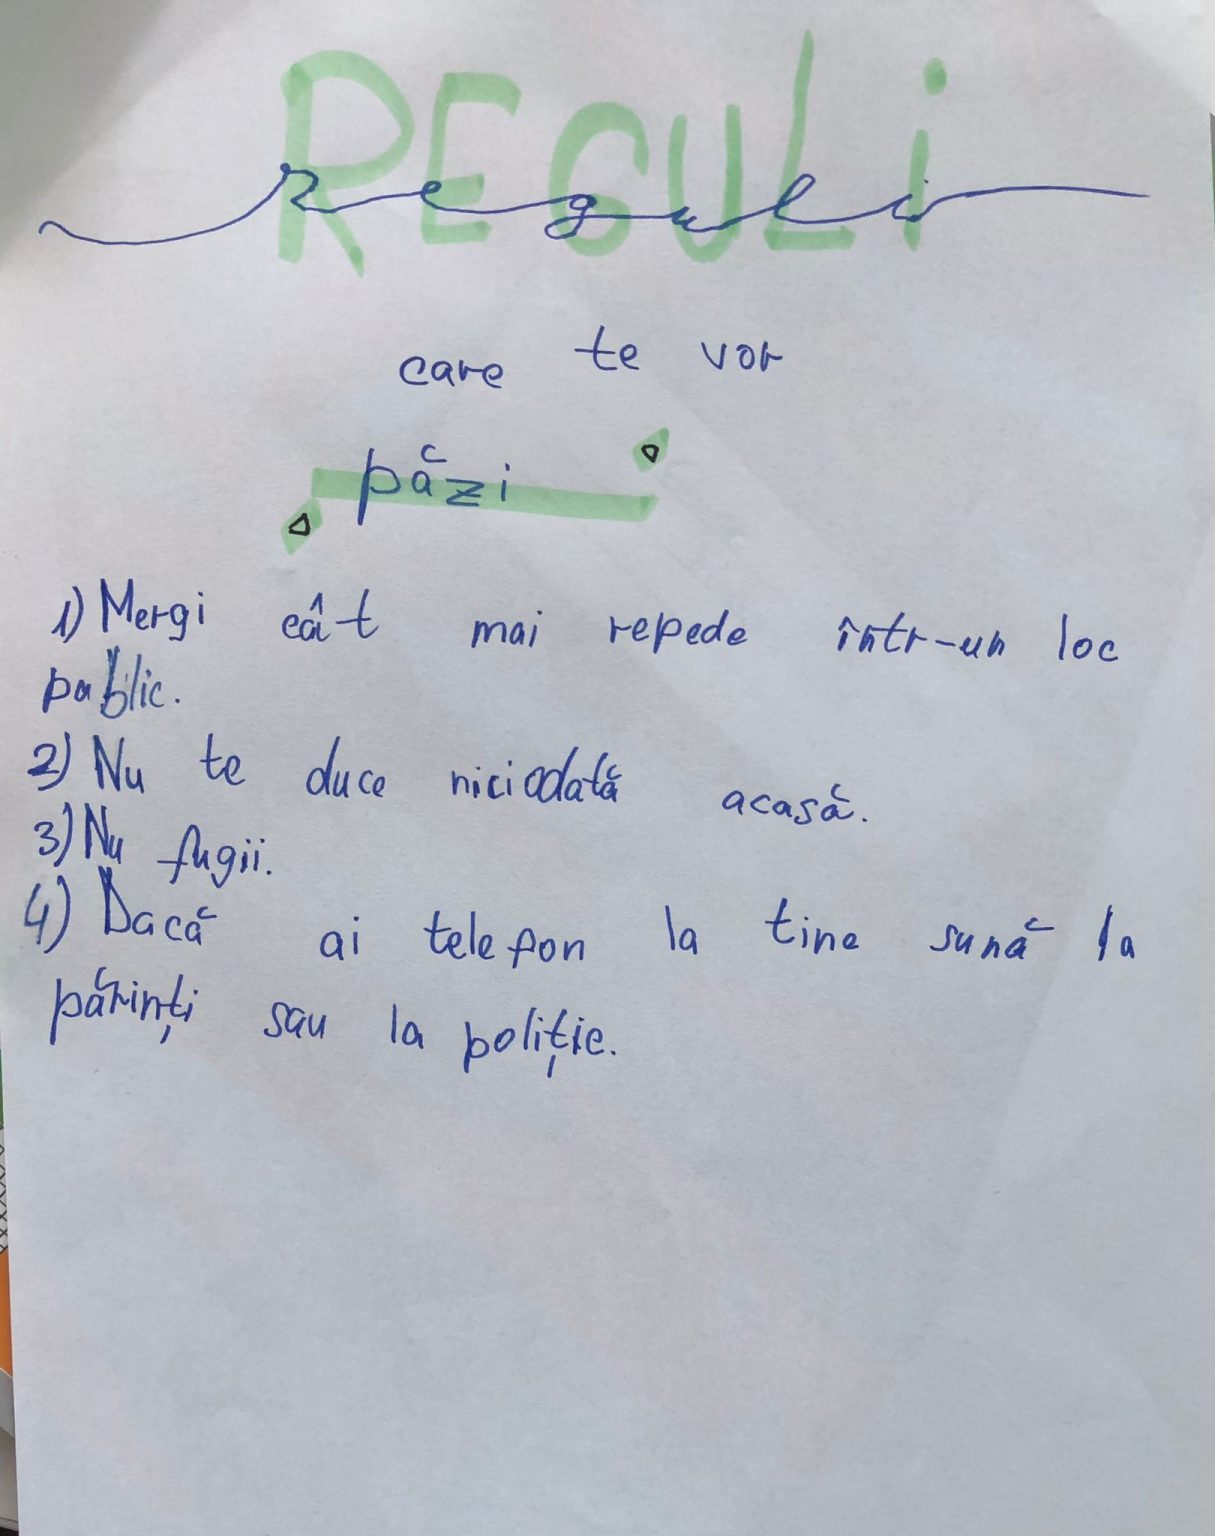 REGULi
reguli
care te vor
păzi
1) Mergi cât mai repede într-un loc
public.
2) Nu te duce niciodată acasă.
3) Nu fugii.
4) Dacă ai telefon la tine sună la
părinți sau la poliție.